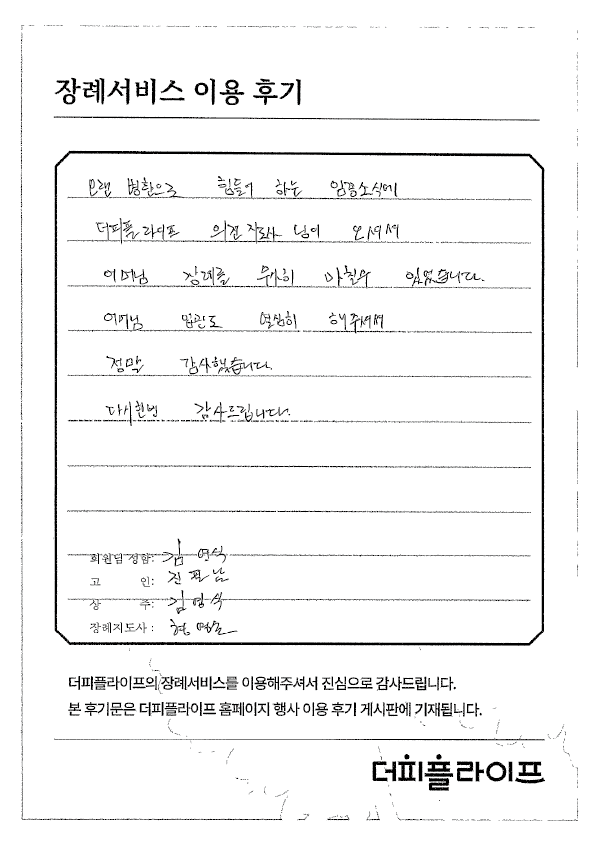 장례서비스 이용 후기
오랜 병환으로 힘들어 하는 임종소식에
더피플라이프 의전 지도사 님이 오셔서
어머님 장례를 무사히 마칠수 있었습니다.
어머님 입관도 열심히 해주셔서
정말 감사했습니다.
다시한번 감사드립니다.
회원님 성함: 김 영식
고 인: 진 필 남
상 주: 김 영 식
장례지도사 : 현
더피플라이프의 장례서비스를 이용해주셔서 진심으로 감사드립니다.
본 후기문은 더피플라이프 홈페이지 행사 이용 후기 게시판에 기재됩니다.
더피플라이프